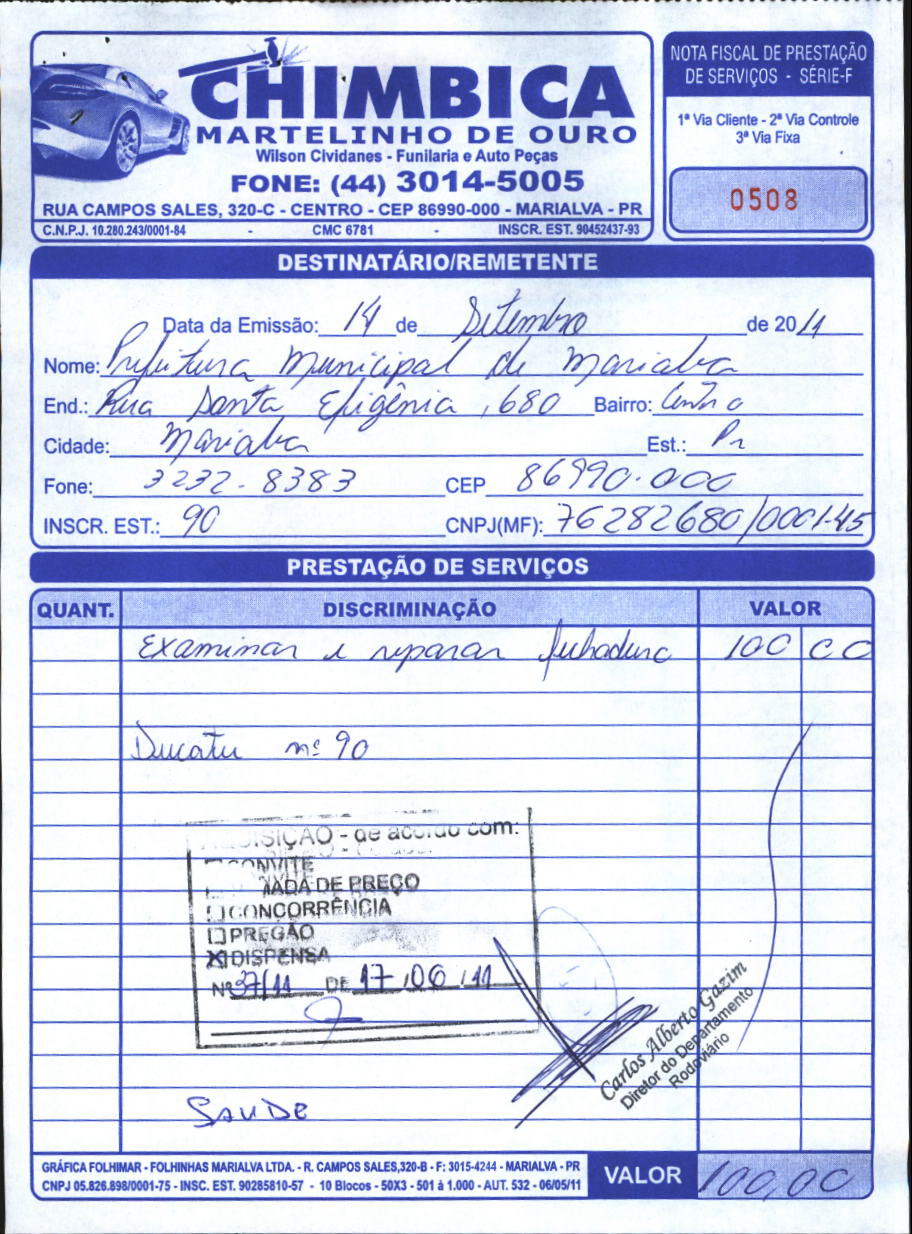 CHIMBICA
MARTELINHO DE OURO
Wilson Cividanes - Funilaria e Auto Peças
FONE: (44) 3014-5005
RUA CAMPOS SALES, 320-C - CENTRO - CEP 86990-000 - MARIALVA - PR
C.N.P.J. 10.280.243/0001-84 - CMC 6781 - INSCR. EST. 90452437-93
NOTA FISCAL DE PRESTAÇÃO
DE SERVIÇOS - SÉRIE-F
1ª Via Cliente - 2ª Via Controle
3ª Via Fixa
0508
DESTINATÁRIO/REMETENTE
Data da Emissão: 14 de Setembro de 2011
Nome: Prefeitura Municipal de Marialva
End.: Rua Santa Efigênia, 680 Bairro: Centro
Cidade: Marialva Est.: Pr
Fone: 3232-8383 CEP 86990.000
INSCR. EST.: 90 CNPJ(MF): 76282680/0001-45
PRESTAÇÃO DE SERVIÇOS
QUANT. DISCRIMINAÇÃO VALOR
Examinar e reparar fechadura 100 00
Ducato nº 90
AQUISIÇÃO - de acordo com:
CONVITE
TOMADA DE PREÇO
CONCORRÊNCIA
PREGÃO
X DISPENSA
Nº 37/11 DE 17/06/11
Carlos Alberto Gazim
Diretor do Departamento
Rodoviário
SAUDE
GRÁFICA FOLHIMAR - FOLHINHAS MARIALVA LTDA. - R. CAMPOS SALES,320-B - F: 3015-4244 - MARIALVA - PR
CNPJ 05.826.898/0001-75 - INSC. EST. 90285810-57 - 10 Blocos - 50X3 - 501 à 1.000 - AUT. 532 - 06/05/11
VALOR 100,00